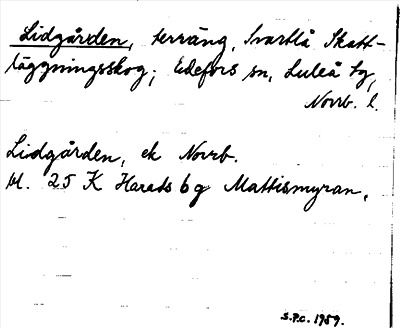 Lidgården, terräng, Svartlå Skatt-
läggningsskog; Edefors sn, Luleå tg,
Norrb. l.
Lidgården, ek Norrb.
bl. 25 K Harads 6 g Mattismyran.
S.P.C. 1959.